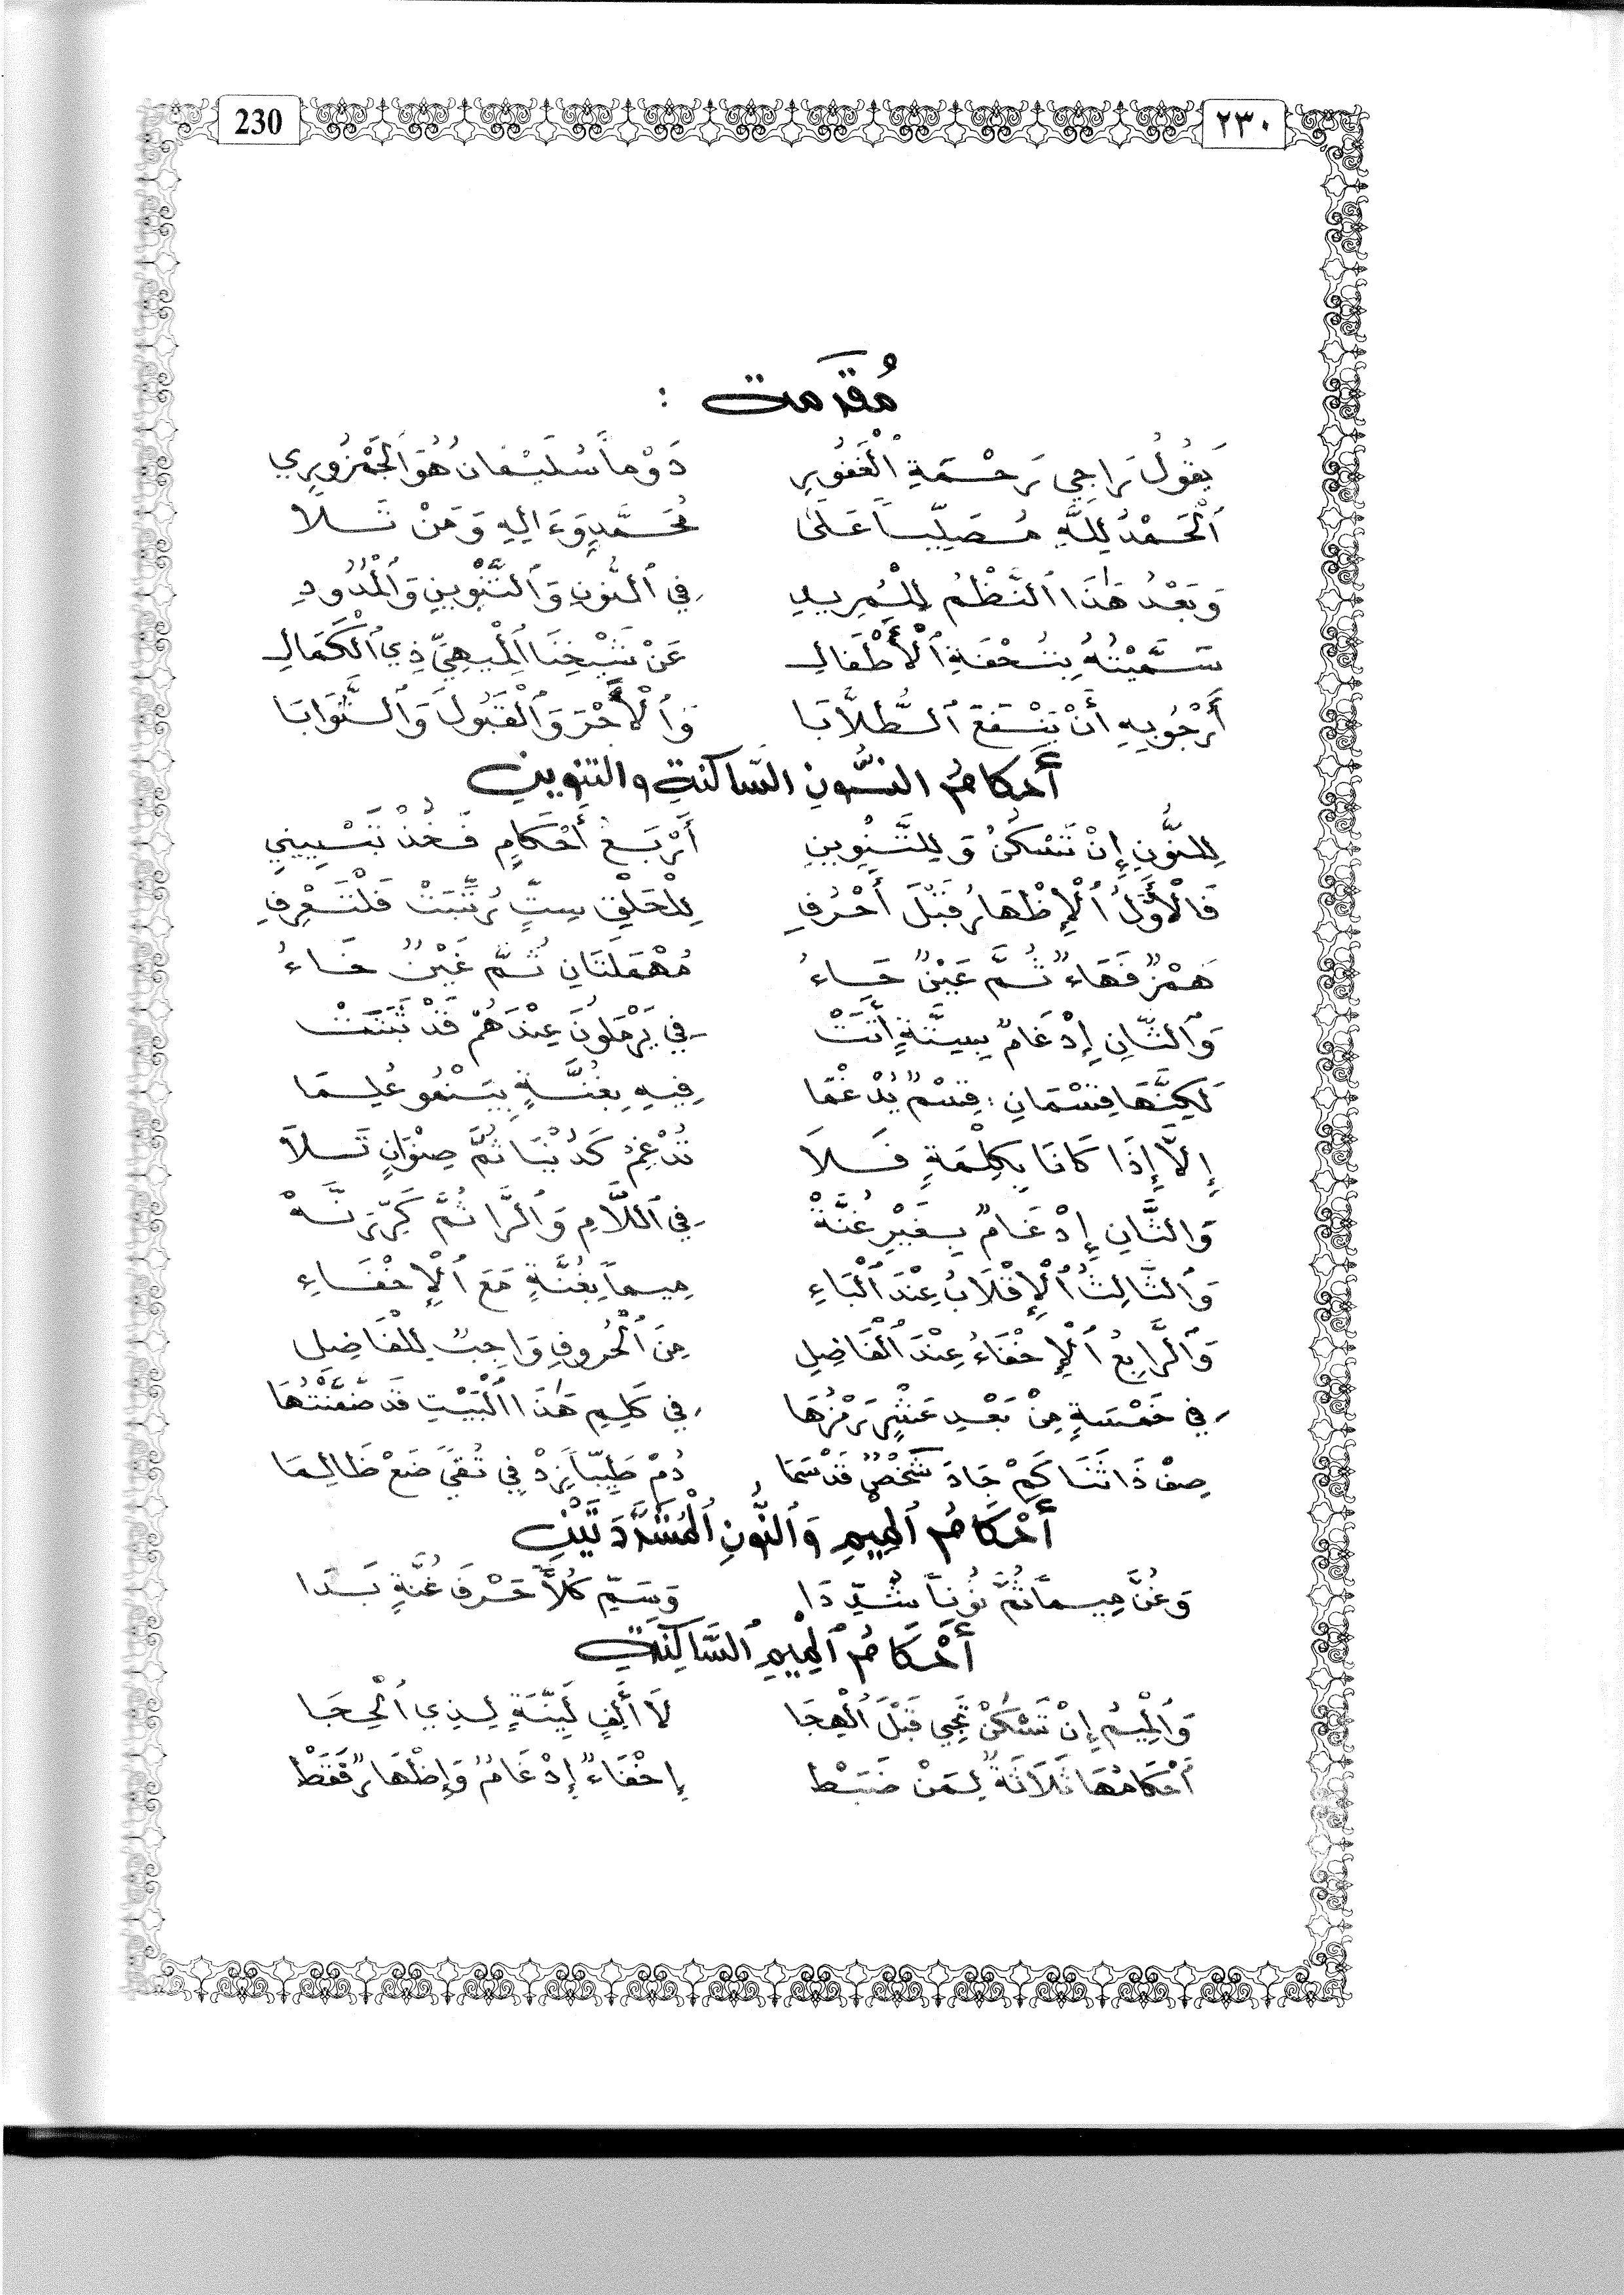 230 ٢٣٠
مُقَدِّمَة :
يَقُولُ رَاجِي رَحْمَةِ الْغَفُورِ دَوْماً سُلَيْمَانُ هُوَ الْجَمْزُورِي
ٱلْحَمْدُ لِلَّهِ مُصَلِّيًا عَلَىٰ مُحَمَّدٍ وَءَالِهِ وَمَنْ تَلَا
وَبَعْدُ هَٰذَا ٱلنَّظْمُ لِلْمُرِيدِ فِي ٱلنُّونِ وَٱلتَّنْوِينِ وَٱلْمُدُودِ
سَمَّيْتُهُ بِتُحْفَةِ ٱلْأَطْفَالِ عَنْ شَيْخِنَا ٱلْمِيهِيِّ ذِي ٱلْكَمَالِ
أَرْجُو بِهِ أَنْ يَنْفَعَ ٱلطُّلَّابَا وَٱلْأَجْرَ وَٱلْقَبُولَ وَٱلثَّوَابَا
أَحكامُ النُّونِ السَّاكنةِ والتنوينِ
لِلنُّونِ إِنْ تَسْكُنْ وَلِلتَّنْوِينِ أَرْبَعُ أَحْكَامٍ فَخُذْ تَبْيِينِي
فَالْأَوَّلُ ٱلْإِظْهَارُ قَبْلَ أَحْرُفِ لِلْحَلْقِ سِتٍّ رُتِّبَتْ فَلْتَعْرِفِ
هَمْزٌ فَهَاءٌ ثُمَّ عَيْنٌ حَاءُ مُهْمَلَتَانِ ثُمَّ غَيْنٌ خَاءُ
وَٱلثَّانِ إِدْغَامٌ بِسِتَّةٍ أَتَتْ فِي يَرْمَلُونَ عِنْدَهُمْ قَدْ ثَبَتَتْ
لَكِنَّهَا قِسْمَانِ : قِسْمٌ يُدْغَمَا فِيهِ بِغُنَّةٍ بِيَنْمُو عُلِمَا
إِلَّا إِذَا كَانَا بِكِلْمَةٍ فَلَا تُدْغِمْ كَدُنْيَا ثُمَّ صِنْوَانٍ تَلَا
وَالثَّانِ إِدْغَامٌ بِغَيْرِ غُنَّةْ فِي ٱللَّامِ وَٱلرَّا ثُمَّ كَرِّرَنَّهْ
وَٱلثَّالِثُ ٱلْإِقْلَابُ عِنْدَ ٱلْبَاءِ مِيماً بِغُنَّةٍ مَعَ ٱلْإِخْفَاءِ
وَٱلرَّابِعُ ٱلْإِخْفَاءُ عِنْدَ ٱلْفَاضِلِ مِنَ ٱلْحُرُوفِ وَاجِبٌ لِلْفَاضِلِ
فِي خَمْسَةٍ مِنْ بَعْدِ عَشْرٍ رَمْزُهَا فِي كَلِمِ هَٰذَا ٱلْبَيْتِ قَد ضَمَّنْتُهَا
صِفْ ذَا ثَنَا كَمْ جَادَ شَخْصٌ قَدْ سَمَا دُمْ طَيِّبًا زِدْ فِي تُقًى ضَعْ ظَالِمَا
أَحْكَامُ ٱلْمِيمِ وَٱلنُّونِ ٱلْمُشَدَّدَتَيْنِ
وَغُنَّ مِيماً ثُمَّ نُوناً شُدِّدَا وَسَمِّ كُلّاً حَرْفَ غُنَّةٍ بَدَا
أَحْكَامُ ٱلْمِيمِ ٱلسَّاكِنَةِ
وَٱلْمِيمُ إِنْ تَسْكُنْ تَجِي قَبْلَ ٱلْهِجَا لَا أَلِفٍ لَيِّنَةٍ لِذِي ٱلْحِجَا
أَحْكَامُهَا ثَلَاثَةٌ لِمَنْ ضَبَطْ إِخْفَاءٌ إِدْغَامٌ وَإِظْهَارٌ فَقَطْ